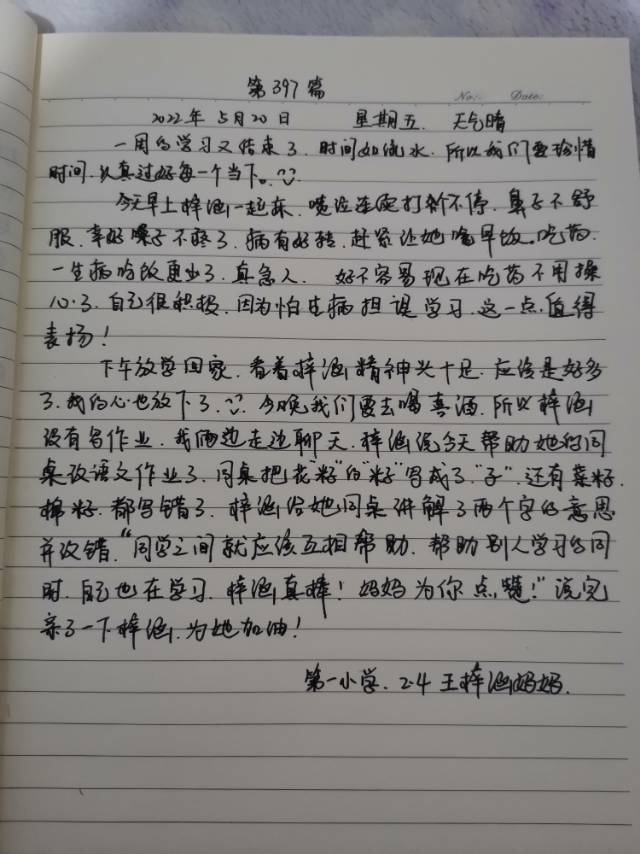 第397篇
No:. Date:
2022年5月20日 星期五. 天气晴
一周的学习又结束了.时间如流水.所以我们要珍惜
时间.认真过好每一个当下。
今天早上梓涵一起床.喷嚏连连打个不停.鼻子不舒
服.幸好嗓子不疼了.病有好转.赶紧让她吃早饭.吃药.
一生病吃饭更少了.真急人. 好不容易现在吃药不用操
心了.自己很积极.因为怕生病担误学习.这一点.值得
表扬!
下午放学回家.看着梓涵精神头十足.应该是好多
了.我的心也放下了. 今晚我们要去喝喜酒.所以梓涵
没有写作业.我俩边走边聊天.梓涵说今天帮助她的同
桌改语文作业了.同桌把花"籽"的"籽"写成了"子".还有菜籽.
棉籽.都写错了.梓涵给她同桌讲解了两个字的意思
并改错."同学之间就应该互相帮助.帮助别人学习的同
时.自己也在学习.梓涵真棒!妈妈为你点赞!"说完
亲了一下梓涵.为她加油!
第一小学.2.4王梓涵妈妈.